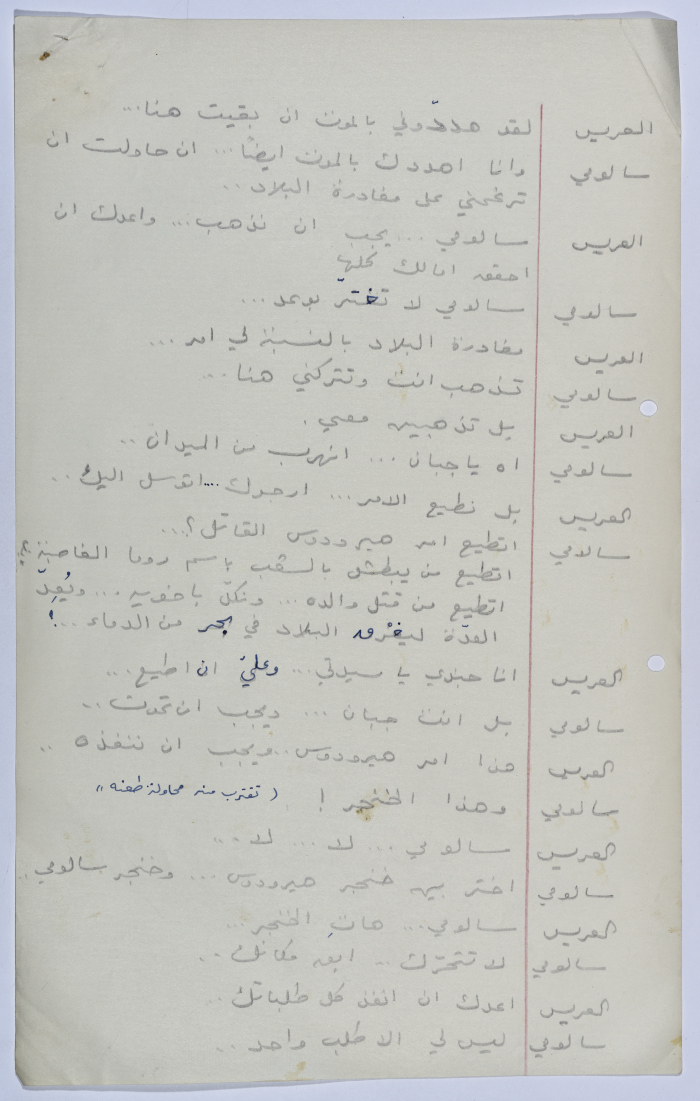 العريس لقد هددّوني بالموت ان بقيت هنا...
سالومي وانا اهددك بالموت ايضاً... ان حاولت ان
ترغمني على مغادرة البلاد..
العريس سالومي... يجب ان نذهب... واعدك ان
احقق امالك كلها
سالومي سالومي لا تغترّ بوعد...
العريس مغادرة البلاد بالنسبة لي امر...
سالومي تذهب انت وتتركني هنا...
العريس بل تذهبين معي.
سالومي اه يا جبان... اتهرب من الميدان..
العريس بل نطيع الامر... ارجوك... اتوسل اليك..
سالومي اتطيع امر هيرودوس القاتل؟...
اتطيع من يبطش بالشعب باسم روما الغاصبة؟
اتطيع من قتل والده... ونكلّ باخويه... ويُعِدّ
العدّة ليغْرق البلاد في بحر من الدماء...!
العريس انا جندي يا سيدتي... وعليّ ان اطيع...
سالومي بل انت جبان... ويجب ان تموت..
العريس هذا امر هيرودوس.. ويجب ان ننفذه..
سالومي وهذا الخنجر! (تقترب منه محاولة طعنه"
العريس سالومي... لا... لا...
سالومي اختر بين خنجر هيرودوس... وخنجر سالومي..
العريس سالومي... هاتِ الخنجر...
سالومي لا تتحرّك.. ابق مكانك..
العريس اعدك ان انفذ كل طلباتك..
سالومي ليس لي الا طلب واحد..